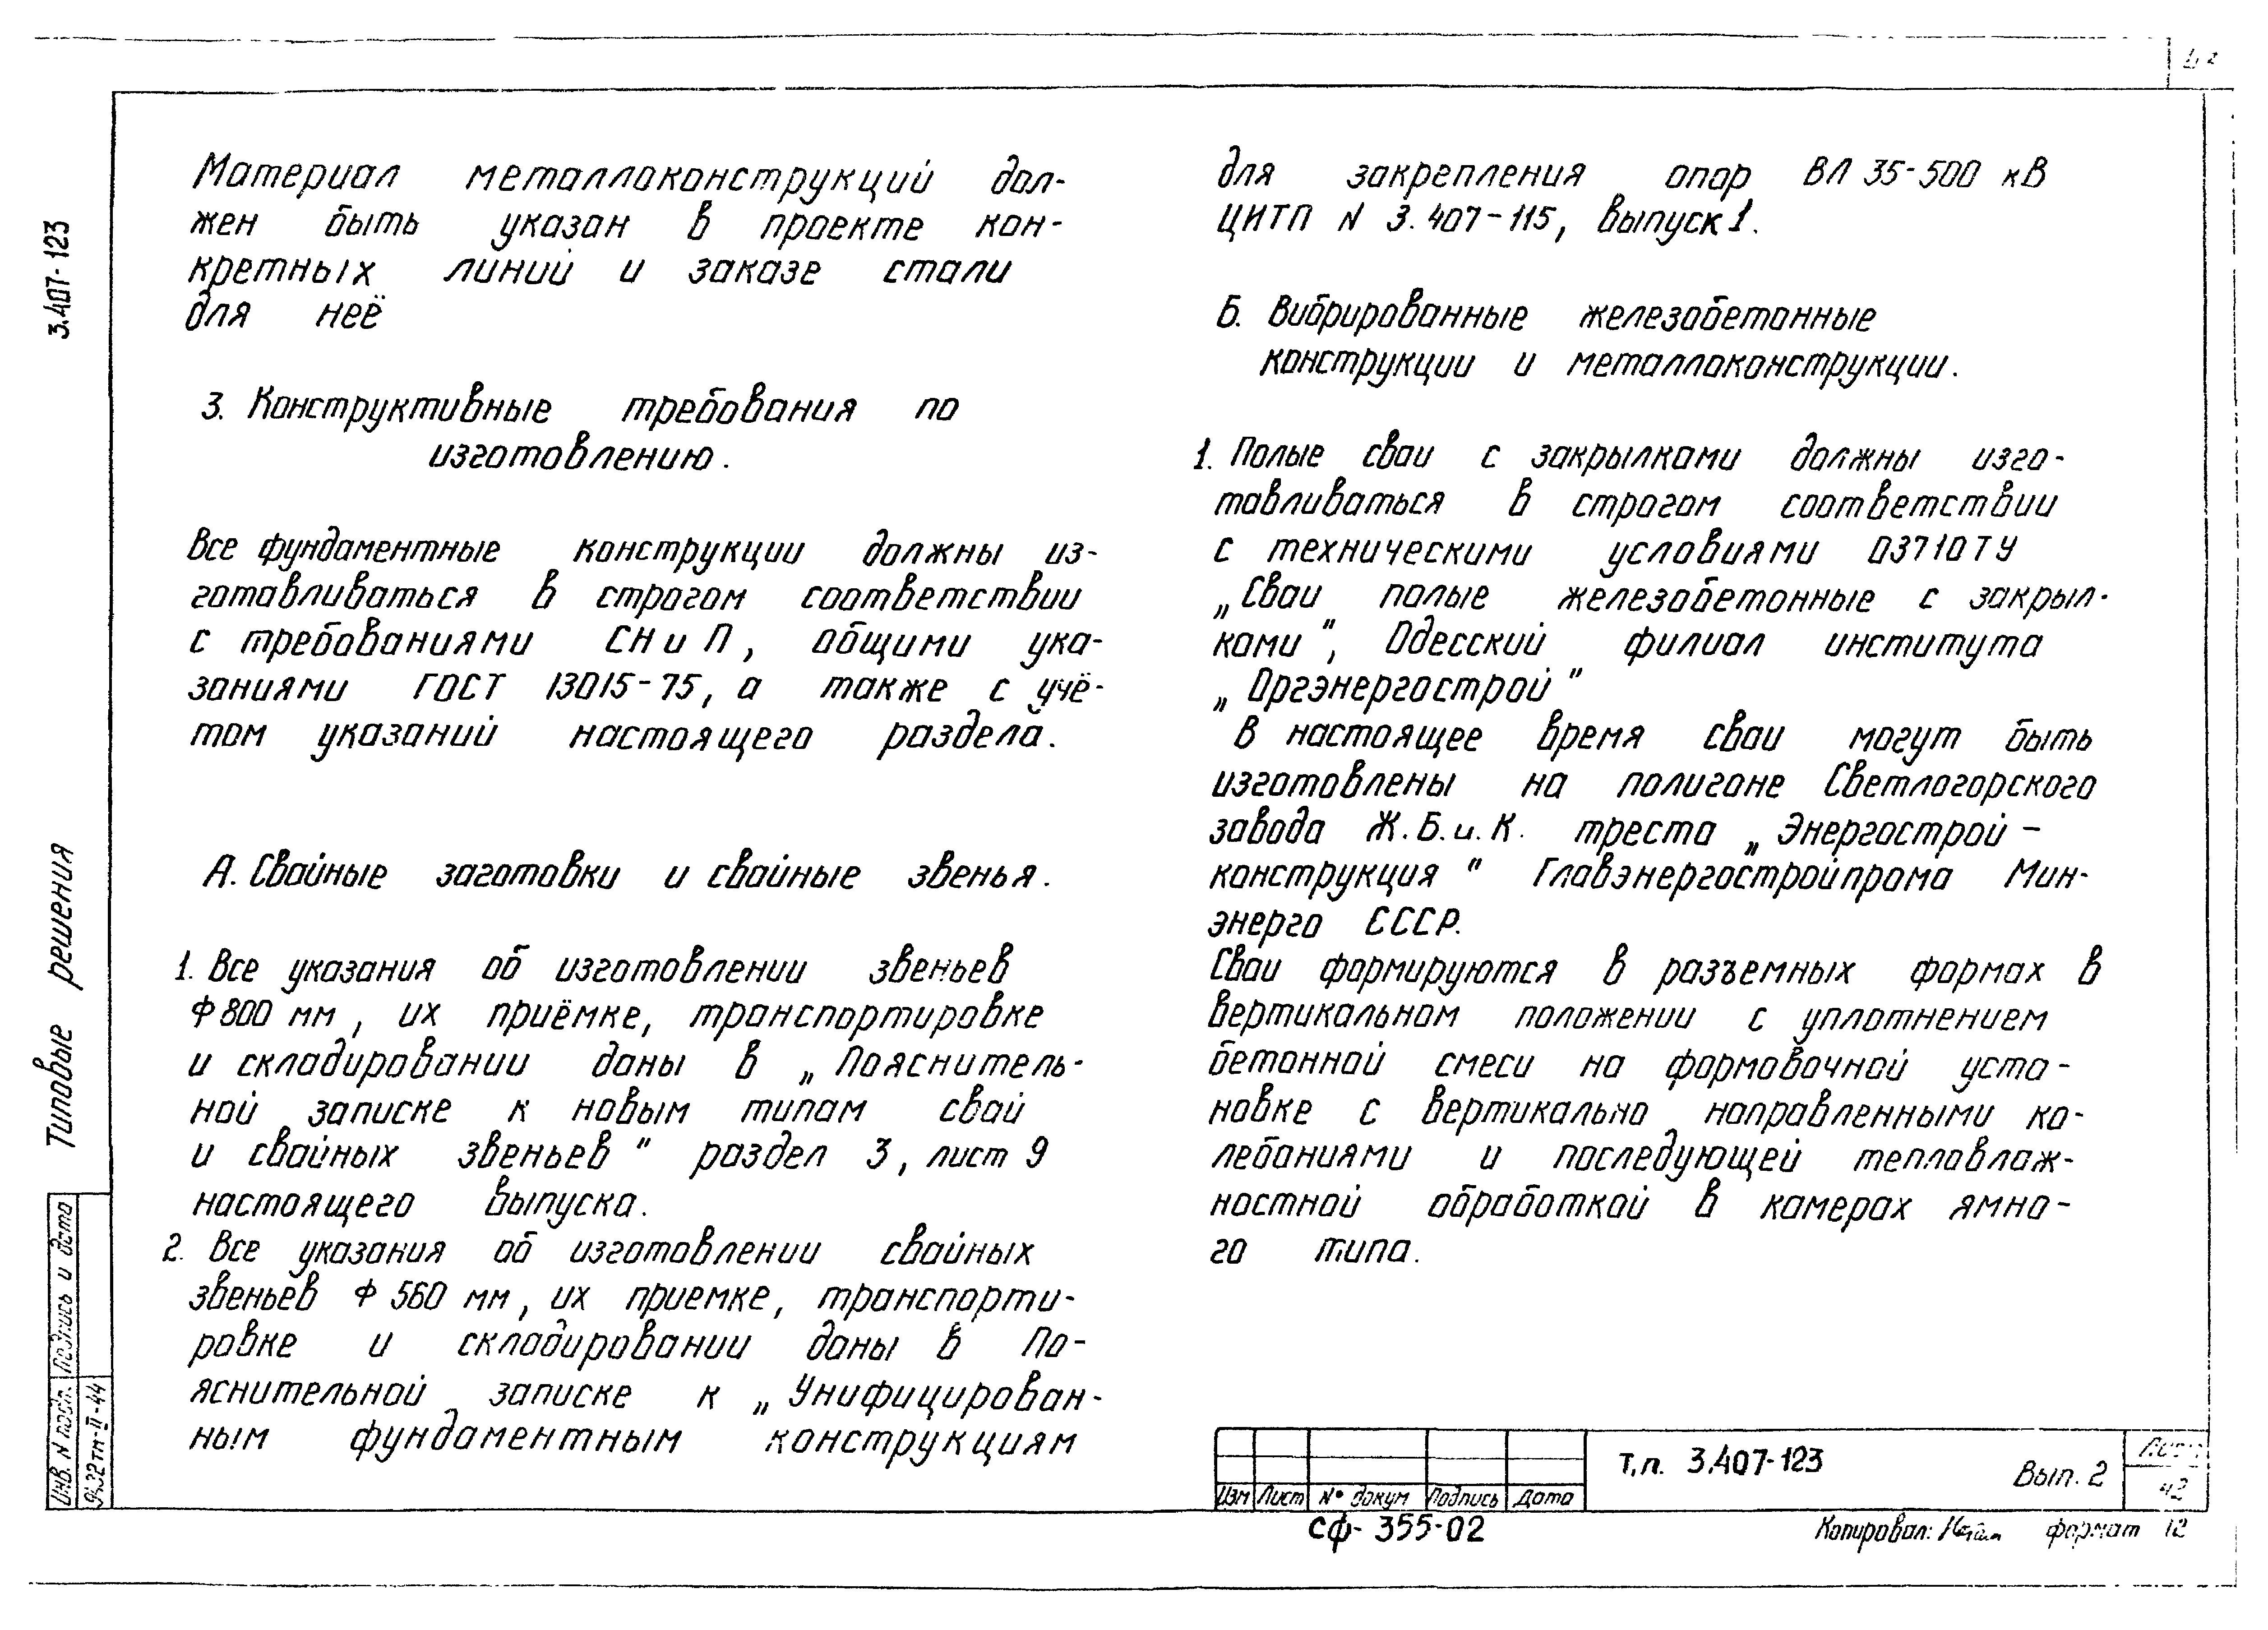 Материал металлоконструкций дол-
жен быть указан в проекте кон-
кретных линий и заказе стали
для неё
3. Конструктивные требования по
изготовлению.
Все фундаментные конструкции должны из-
готавливаться в строгом соответствии
с требованиями СНиП, общими ука-
заниями ГОСТ 13015-75, а также с учё-
том указаний настоящего раздела.
А. Свайные заготовки и свайные звенья.
1. Все указания об изготовлении звеньев
Ф 800 мм, их приёмке, транспортировке
и складировании даны в „Пояснитель-
ной записке к новым типам свай
и свайных звеньев" раздел 3, лист 9
настоящего выпуска.
2. Все указания об изготовлении свайных
звеньев Ф 560 мм, их приемке, транспорти-
ровке и складировании даны в По-
яснительной записке к „Унифицирован-
ным фундаментным конструкциям
для закрепления опор ВЛ 35-500 кВ
ЦИТП N 3.407-115, выпуск 1.
Б. Вибрированные железобетонные
конструкции и металлоконструкции.
1. Полые сваи с закрылками должны изго-
тавливаться в строгом соответствии
с техническими условиями 03710ТУ
„Сваи полые железобетонные с закрыл-
ками", Одесский филиал института
„Оргэнергострой"
В настоящее время сваи могут быть
изготовлены на полигоне Светлогорского
завода Ж.Б.и.К. треста „Энергострой-
конструкция" Главэнергостройпрома Мин-
энерго СССР.
Сваи формируются в разъемных формах в
вертикальном положении с уплотнением
бетонной смеси на формовочной уста-
новке с вертикально направленными ко-
лебаниями и последующей тепловлаж-
ностной обработкой в камерах ямно-
го типа.
3.407-123
Типовые решения
Инв. N подл. Подпись и дата
Изм Лист N° докум Подпись Дата
Т.п. 3.407-123
Вып. 2
Лист
42
СФ-355-02
Копировал:
формат 12